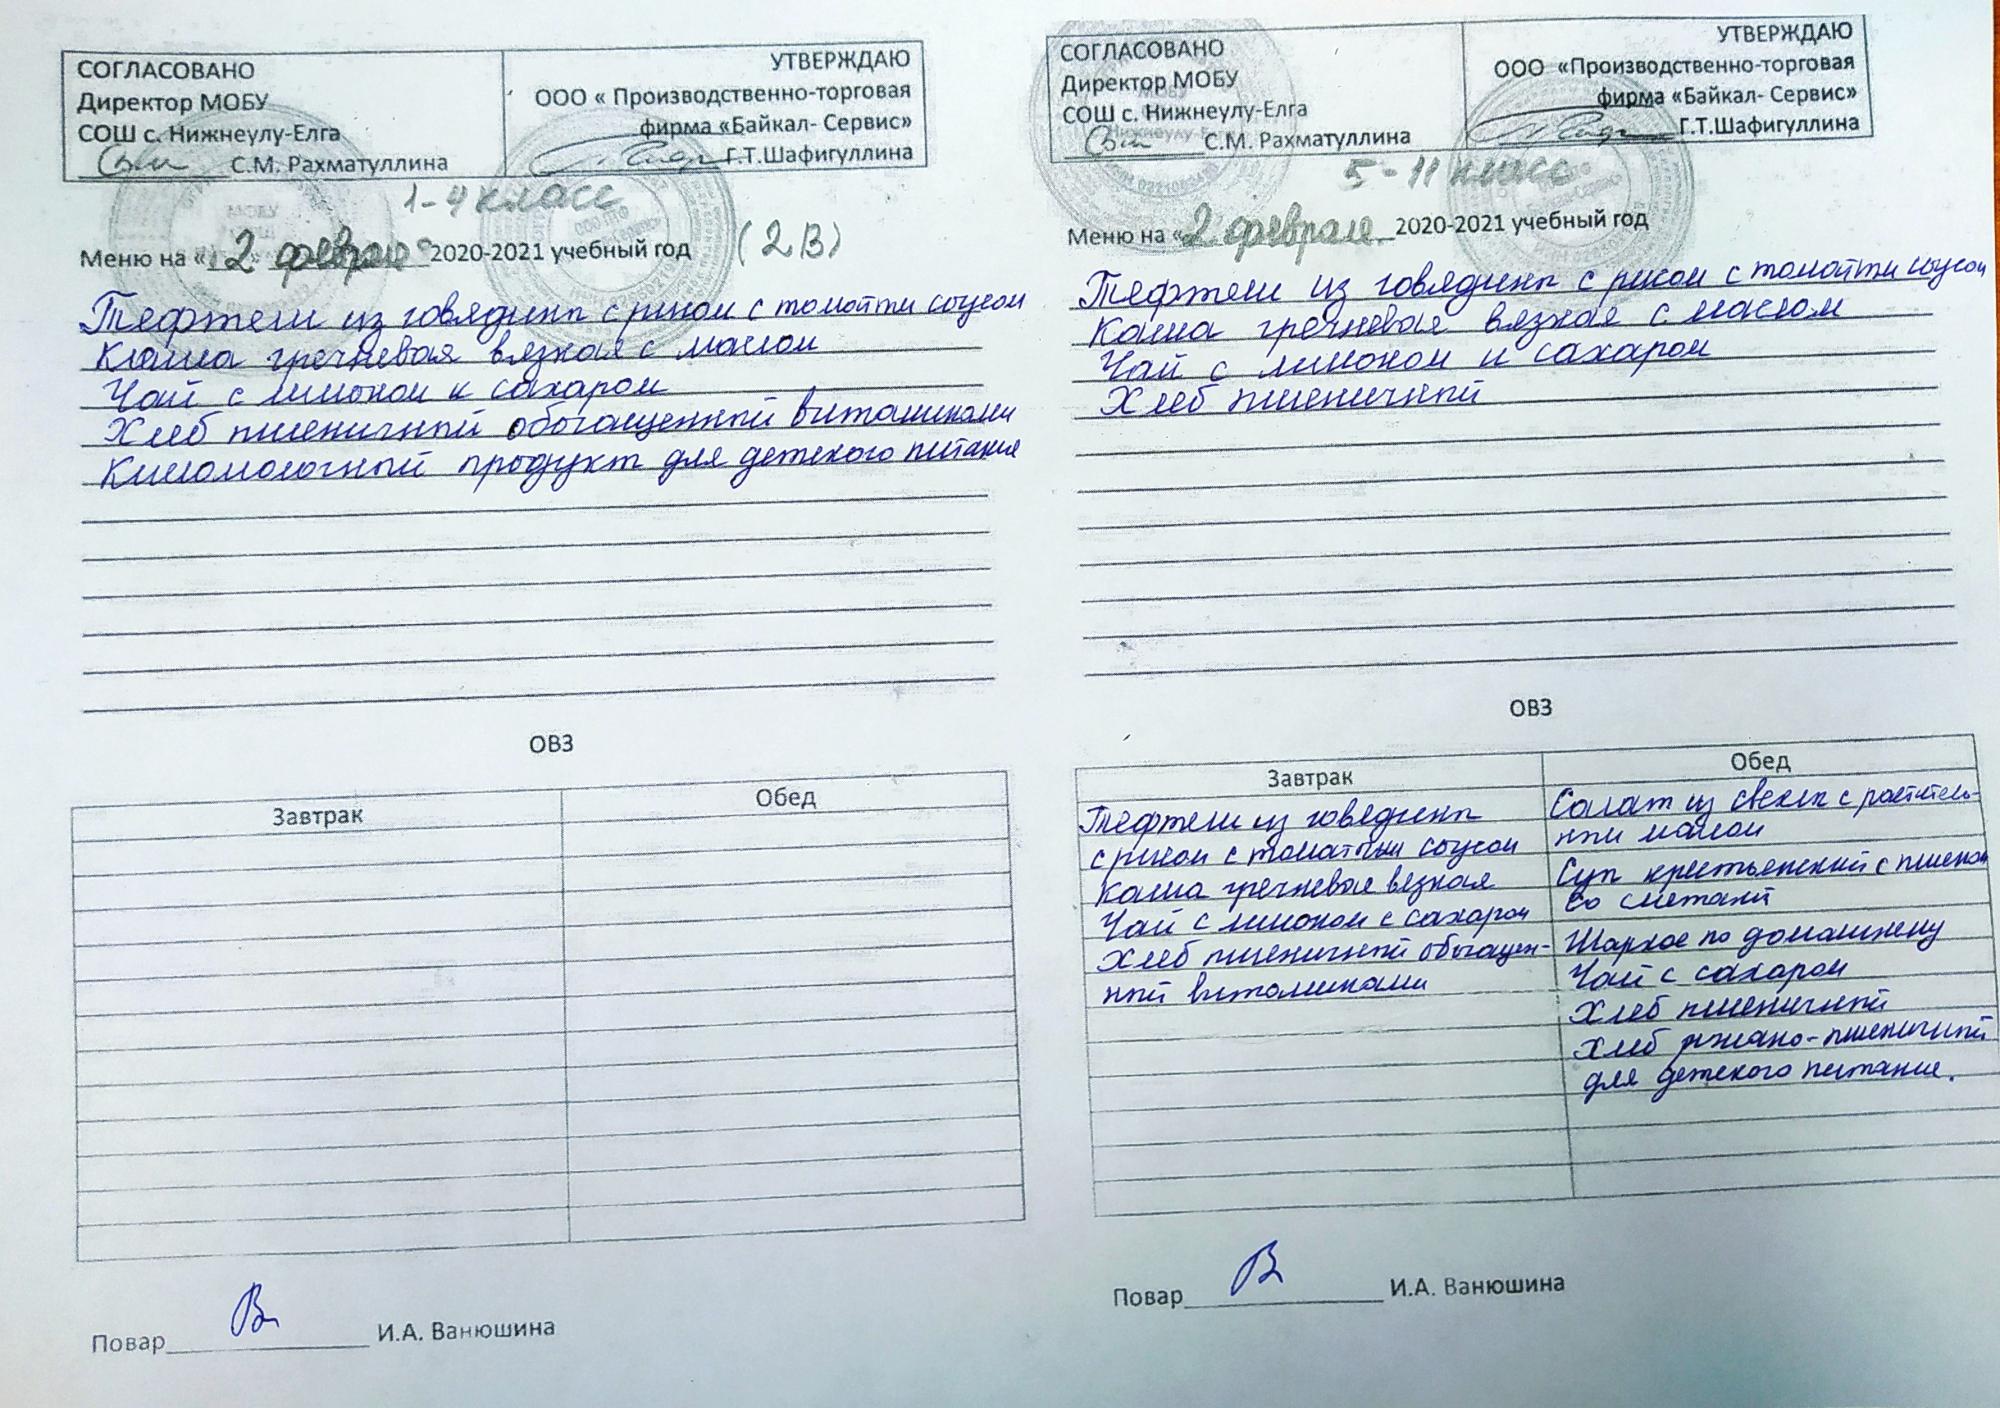 СОГЛАСОВАНО
Директор МОБУ
СОШ с. Нижнеулу-Елга
С.М. Рахматуллина
УТВЕРЖДАЮ
ООО « Производственно-торговая
фирма «Байкал- Сервис»
Г.Т.Шафигуллина
1-4 класс
Меню на « 2 » февраля 2020-2021 учебный год (2В)
Тефтели из говядины с рисом с томатным соусом
Каша гречневая вязкая с маслом
Чай с лимоном и сахаром
Хлеб пшеничный обогащенный витаминами
Кисломолочный продукт для детского питания
ОВЗ
Завтрак Обед
Повар И.А. Ванюшина
СОГЛАСОВАНО
Директор МОБУ
СОШ с. Нижнеулу-Елга
С.М. Рахматуллина
УТВЕРЖДАЮ
ООО «Производственно-торговая
фирма «Байкал- Сервис»
Г.Т.Шафигуллина
5-11 класс
Меню на «2 февраля 2020-2021 учебный год
Тефтели из говядины с рисом с томатным соусом
Каша гречневая вязкая с маслом
Чай с лимоном и сахаром
Хлеб пшеничный
ОВЗ
Завтрак
Тефтели из говядины
с рисом с томатным соусом
Каша гречневая вязкая
Чай с лимоном с сахаром
Хлеб пшеничный обогащен-
ный витаминами
Обед
Салат из свеклы с раститель-
ным маслом
Суп крестьянский с пшеном
со сметаной
Жаркое по домашнему
Чай с сахаром
Хлеб пшеничный
Хлеб ржано-пшеничный
для детского питания.
Повар И.А. Ванюшина